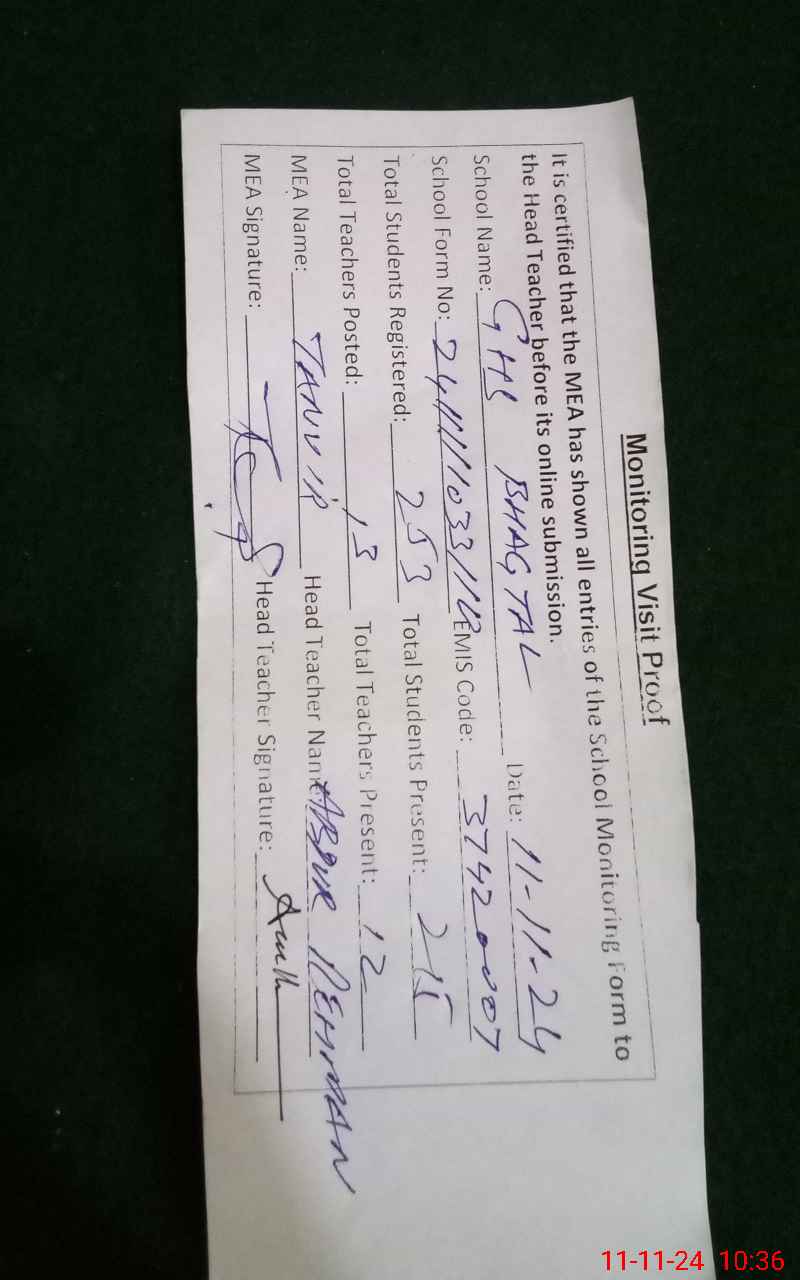 Monitoring Visit Proof
It is certified that the MEA has shown all entries of the School Monitoring Form to
the Head Teacher before its online submission.
School Name: GHS BHAGTAL Date: 11-11-24
School Form No: EMIS Code: 37420007
Total Students Registered: 253 Total Students Present: 215
Total Teachers Posted: 13 Total Teachers Present: 12
MEA Name: TANVIR Head Teacher Name: ABDUR REHMAN
MEA Signature: Head Teacher Signature:
11-11-24 10:36